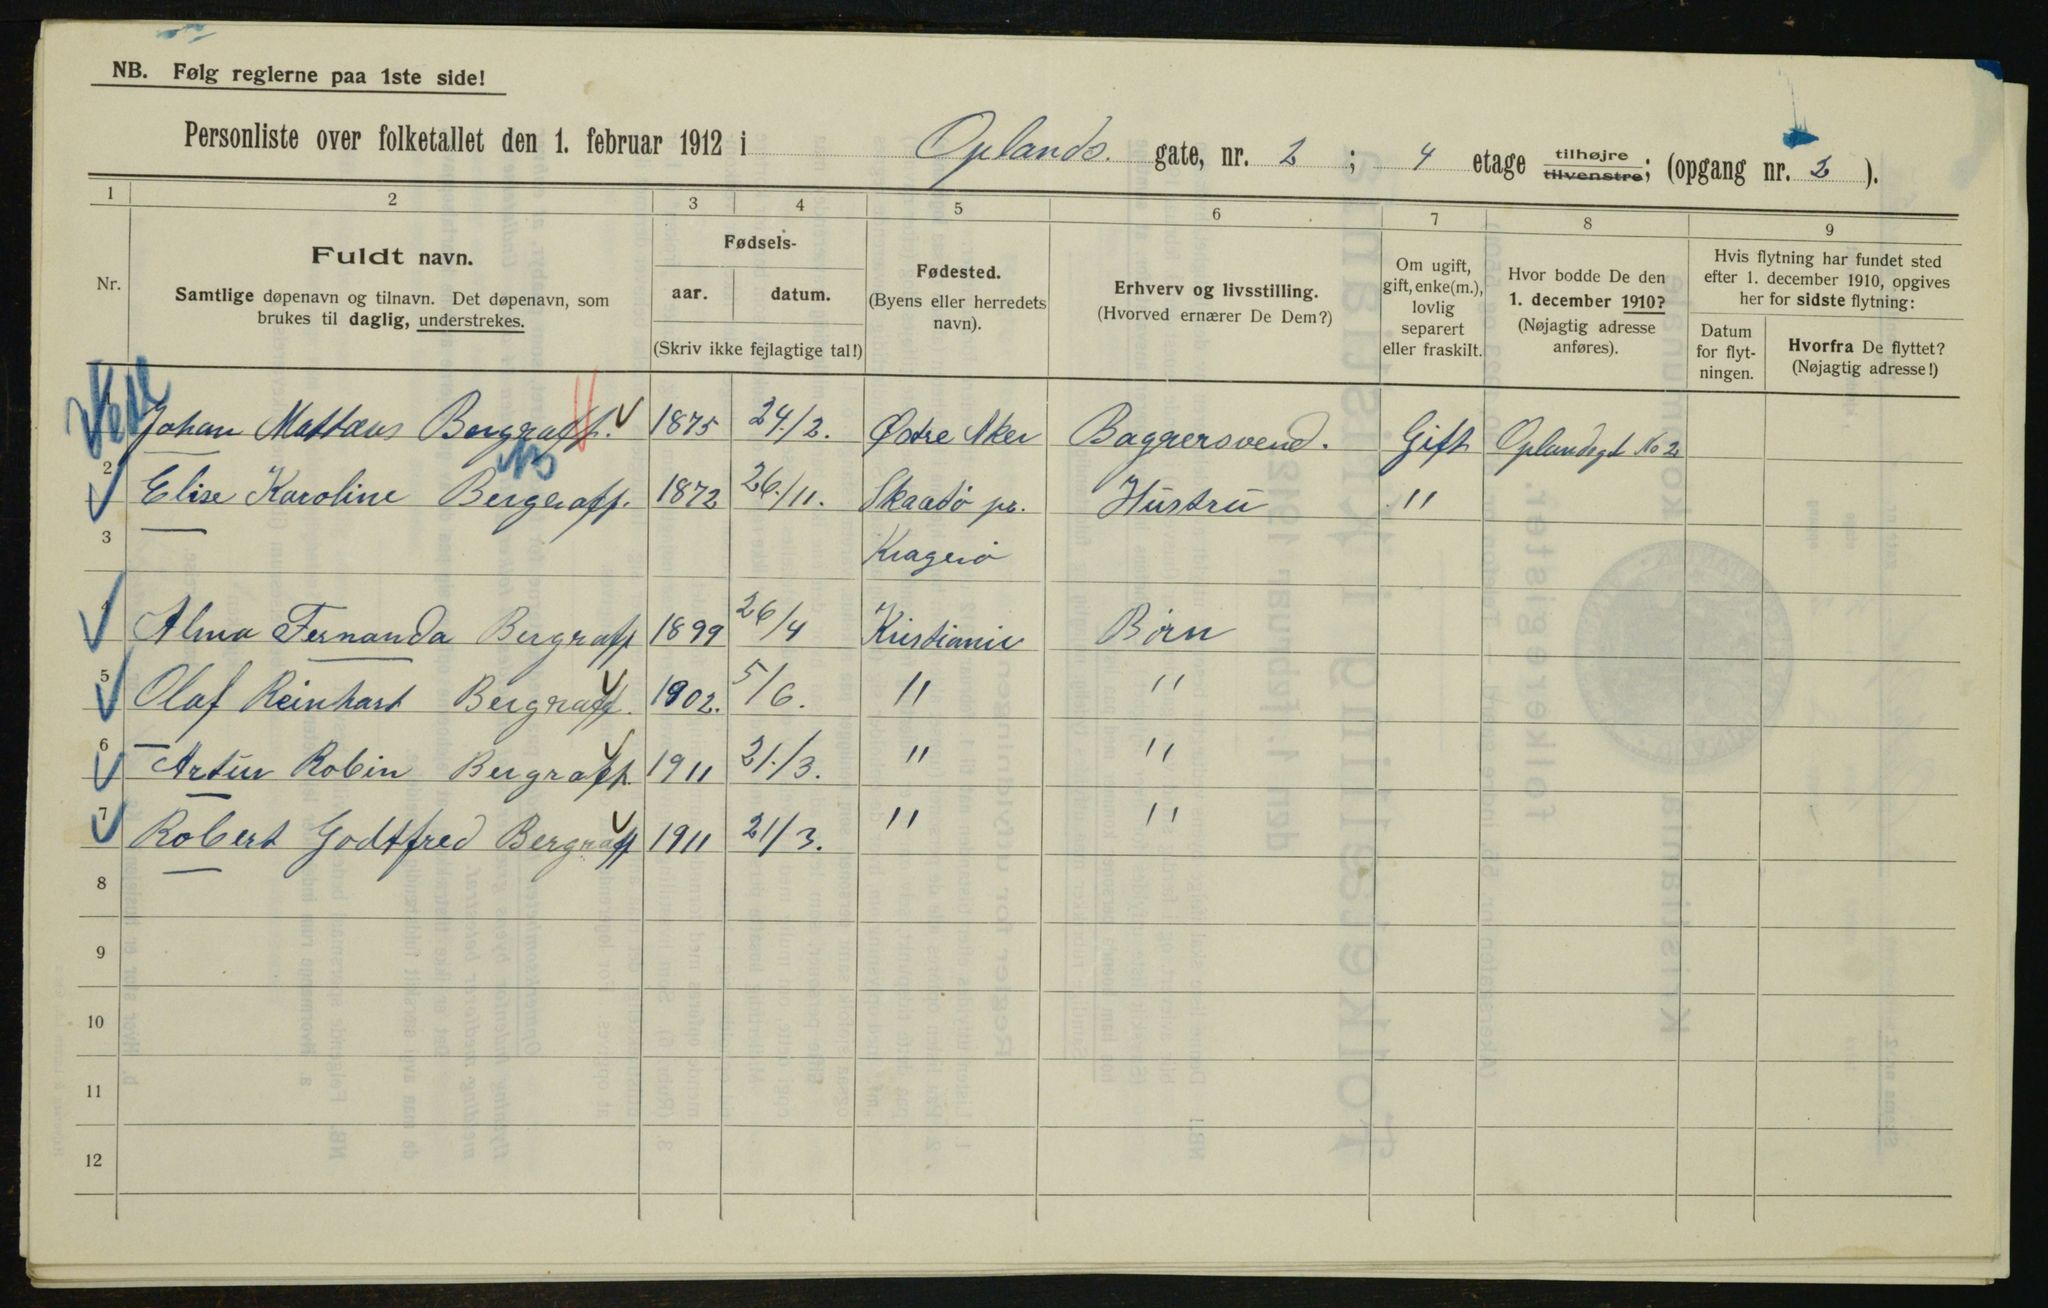 NB. Følg reglerne paa 1ste side!
Personliste over folketallet den 1. februar 1912 i Oplands. gate, nr. 2 ; 4 etage tilhøjre tilvenstre; (opgang nr. 2 ).
1 2 3 4 5 6 7 8 9
Nr.
Fuldt navn.
Samtlige døpenavn og tilnavn. Det døpenavn, som
brukes til daglig, understrekes.
Fødsels-
aar. datum.
(Skriv ikke fejlagtige tal!)
Fødested.
(Byens eller herredets
navn).
Erhverv og livsstilling.
(Hvorved ernærer De Dem?)
Om ugift,
gift, enke(m.),
lovlig
separert
eller fraskilt.
Hvor bodde De den
1. december 1910?
(Nøjagtig adresse
anføres).
Hvis flytning har fundet sted
efter 1. december 1910, opgives
her for sidste flytning:
Datum
for flyt-
ningen.
Hvorfra De flyttet?
(Nøjagtig adresse!)
Johan Mattæus Bergraff. 1875 24./2. Østre Aker Baggersvend. Gift Oplandsgt No 2
2 Elise Karoline Bergraff. 1872 26./11. Skaatø pr. Hustru "
3 Kragerø
4 Alma Fernanda Bergraff 1899 26/4 Kristiania Børn
5 Olaf Reinhart Bergraff. 1902. 5/6. " "
6 Artur Robin Bergraff. 1911 21./3. " "
7 Robert Godtfred Bergraff 1911 21/3. " "
8
9
10
11
12